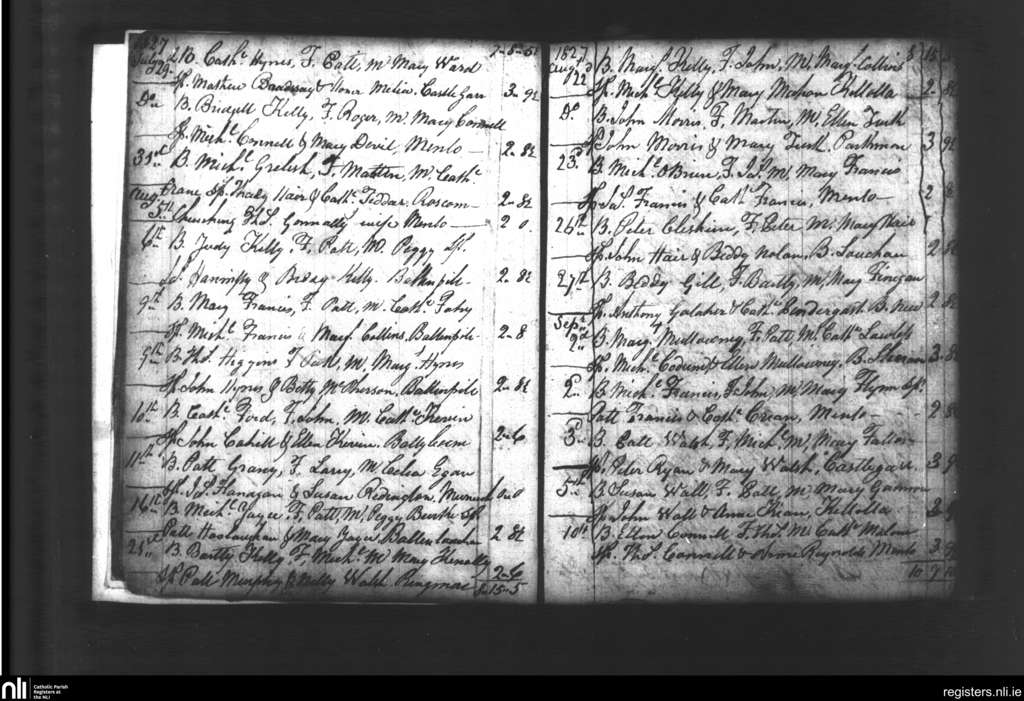 1827 2-8-5½
July 21 B. Cathe. Hynes, F. Patt, M. Mary Ward
29 Sp. Mathew & Honor Melia, Castle Garr 3-9½
Do. B. Bridgett Kelly, F. Roger, M. Mary Connell
Sp. Michl. Connell & Mary Devil, Menlo 2-8½
31st B. Michl. Grelish, F. Matten, M. Cathe.
Sp. Thady Hair & Cathe. Roscom 2-8½
Augt. 5th Churching Ths. Gonnally wife Menlo 2 0
6th B. Judy Kelly, F. Patt, M. Peggy Sp.
Js. Hannifty & Biddy Kelly. Ballinpile 2-8½
9th B. Mary Francis, F. Patt, M. Cathe. Fahy
Sp. Michl. Francis & Mary Collins, Ballinpile 2-8
9th B. Ths. Higgins F. Patt, M. Mary Hynes
Sp. John Hynes & Betty McPherson, Ballinpile 2-8½
10th B. Cathe. Ford, F. John, M. Cathe. Kerin
Sp. John Cahill & Ellen Kerin. 2-6
11th B. Patt Graney, F. Larry, M. Celia Egan
Sp. Js. Flanagan & Susan Redington, 0-0
14th B. Michl. Joyce, F. Patt, M. Peggy Burke Sp.
Patt & Mary Joyce 2 8½
21st B. Bartly Kelly, F. Michl. M. Mary Henelly
Sp. Patt Murphy & Nelly Walsh Ringmac 2-6
8-15-5
1827
Augt. 22 B. Mary Kelly, F. John, M. Mary
Sp. Michl. Kelly & Mary Mahon Killolla 2-8½
Do. B. John Morris, F. Martin, M. Ellen Turk
Sp. John Morris & Mary Turk Parkmon 3 9½
23rd B. Michl. OBrien, F. Js. M. Mary Francis
Sp. Js. Francis & Cathe. Francis, Menlo 2 8
26th B. Peter Cleshim, F. Peter M. Mary Hair
Sp. John Hair & Biddy Nolan, B. Louchan 2 8½
27th B. Biddy Gill, F. Bartly, M. Mary Finegan
Sp. Anthony Golaher & Cathe. Pendergast B. 2 8½
Sept. 2nd B. Mary Mullowney, F. Patt, M. Cathe. Lawless
Sp. Michl. & Ellen Mullowney, B. 3-8½
2 B. Michl. Francis, F. John, M. Mary Flynn Sp.
Patt Francis & Cathe. Crean, Menlo 2 8½
3rd B. Patt Walsh, F. Michl. M. Mary Fallon
Sp. Peter Ryan & Mary Walsh, Castlegarr 3 9
5th B. Susan Wall, F. Patt, M. Mary Gannon
Sp. John Wall & Anne Kean, Killolla
10th B. Ellen Connell F. Ths. M. Cathe. Malone
Sp. Ths. Connell & Anne Reynolds Menlo 3-9
10 7
nli
Catholic Parish
Registers at
the NLI
registers.nli.ie